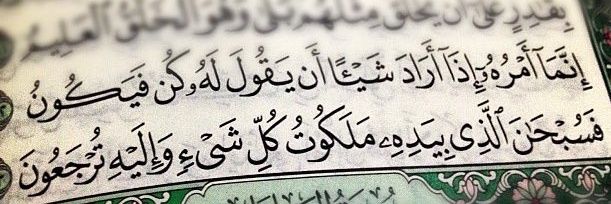 بِقَٰدِرٍ عَلَىٰٓ أَن يَخْلُقَ مِثْلَهُم بَلَىٰ وَهُوَ ٱلْخَلَّٰقُ ٱلْعَلِيمُ
إِنَّمَآ أَمْرُهُۥٓ إِذَآ أَرَادَ شَيْـًٔا أَن يَقُولَ لَهُۥ كُن فَيَكُونُ
فَسُبْحَٰنَ ٱلَّذِى بِيَدِهِۦ مَلَكُوتُ كُلِّ شَىْءٍ وَإِلَيْهِ تُرْجَعُونَ